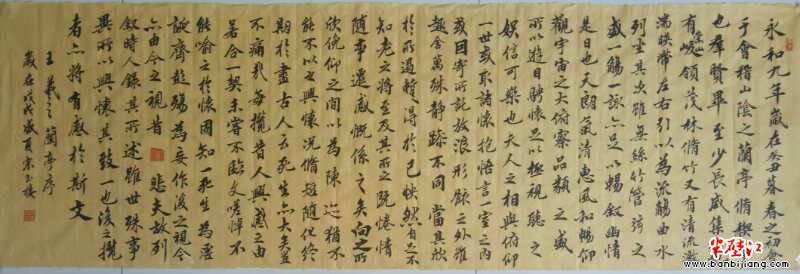 永和九年歲在癸丑暮春之初會
于會稽山陰之蘭亭脩禊事
也群賢畢至少長咸集此地
有崇山峻領茂林脩竹又有清流激
湍暎帶左右引以為流觴曲水
列坐其次雖無絲竹管弦之
盛一觴一詠亦足以暢敘幽情
是日也天朗氣清惠風和暢仰
觀宇宙之大俯察品類之盛
所以遊目騁懷足以極視聽之
娛信可樂也夫人之相與俯仰
一世或取諸懷抱悟言一室之內
或因寄所託放浪形骸之外雖
趣舍萬殊靜躁不同當其欣
於所遇暫得於己怏然自足不
知老之將至及其所之既惓情
隨事遷感慨係之矣向之所
欣俛仰之間以為陳迹猶不
能不以之興懷況脩短隨化終
期於盡古人云死生亦大矣豈
不痛哉每攬昔人興感之由
若合一契未嘗不臨文嗟悼不
能喻之於懷固知一死生為虛
誕齊彭殤為妄作後之視今
亦由今之視昔悲夫故列
敘時人錄其所述雖世殊事
異所以興懷其致一也後之攬
者亦將有感於斯文
王羲之蘭亭序
歲在戊戌
半壁江
www.banbijiang.com